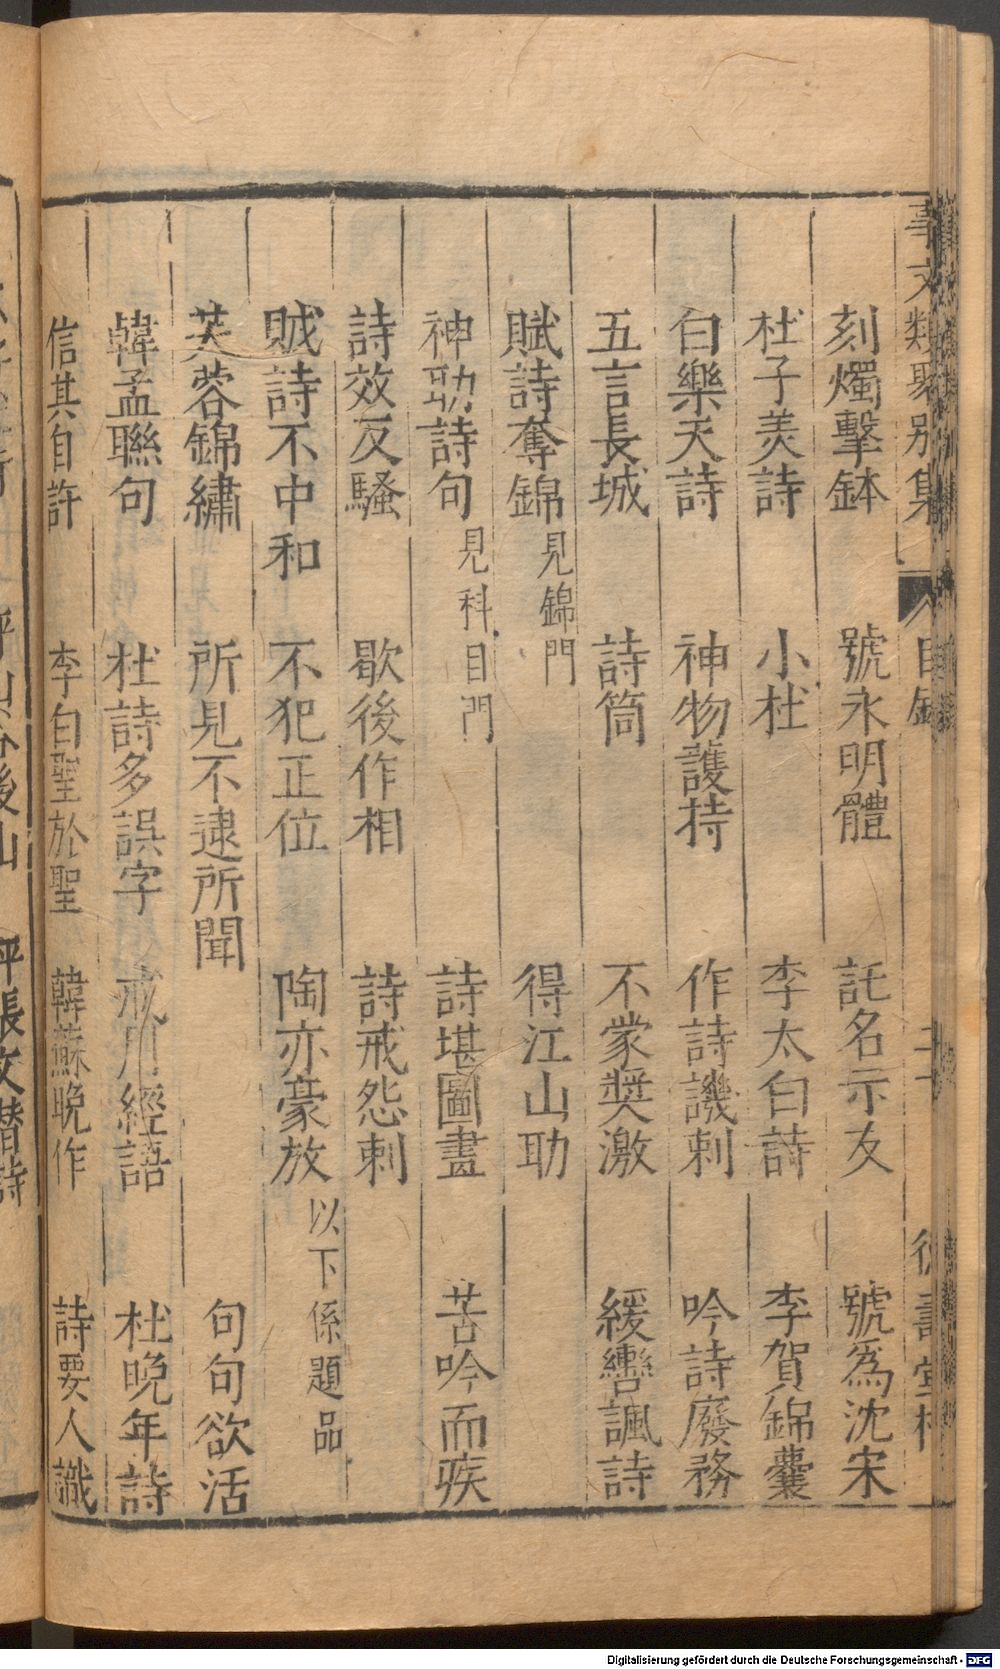 事文類聚別集 目錄 二十 德壽堂梓
刻燭擊鉢 號永明體 託名示友 號爲沈宋
杜子美詩 小杜 李太白詩 李賀錦囊
白樂天詩 神物護持 作詩譏刺 吟詩廢務
五言長城 詩筒 不蒙奬激 緩轡諷詩
賦詩奪錦 見錦門 得江山助
神助詩句 見科目門 詩堪圖畫 苦吟而疾
詩效反騷 歇後作相 詩戒怨刺
賊詩不中和 不犯正位 陶亦豪放 以下係題品
芙蓉錦繡 所見不逮所聞 句句欲活
韓孟聯句 杜詩多誤字 戒用經語 杜晩年詩
信其自許 李白聖於聖 韓蘇晩作 詩要人識
坪山谷後山 坪張文潛詩
Digitalisierung gefördert durch die Deutsche Forschungsgemeinschaft - DFG